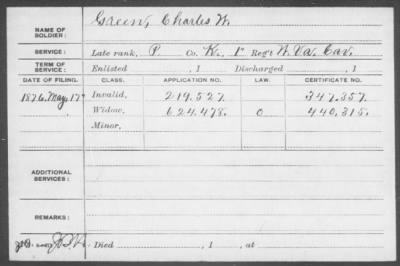 NAME OF SOLDIER: Green, Charles W.
SERVICE: Late rank, P. Co. K. 1" Reg't W. Va. Cav.
TERM OF SERVICE: Enlisted , 1 Discharged , 1
DATE OF FILING. CLASS. APPLICATION NO. LAW. CERTIFICATE NO.
1876, May, 17" Invalid, 219.527. 347.357.
Widow, 624.478. 0 440.315.
Minor,
ADDITIONAL SERVICES:
REMARKS:
Died , 1 , at